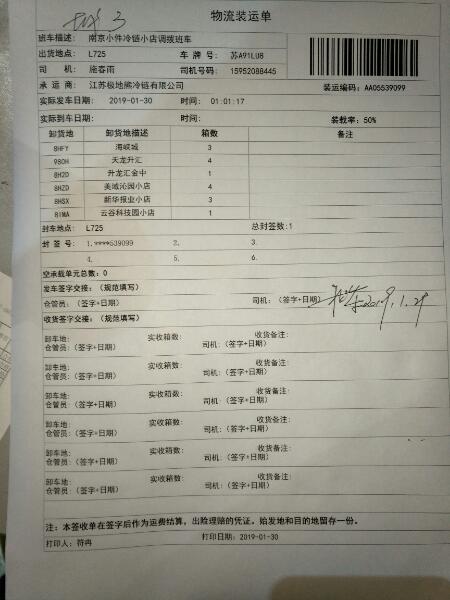 3
物流装运单
班车描述: 南京小件冷链小店调拨班车
出货地点: L725 车 牌 号: 苏A91LU8
司 机: 施春雨 司机号码: 15952088445
承 运 商: 江苏极地熊冷链有限公司 装运编码: AA05539099
实际发车日期: 2019-01-30 时间: 01:01:17
实际到车日期: 时间: 装载率: 50%
卸货地 卸货地描述 箱数 备注
8HFY 海峡城 3
980H 天龙升汇 4
8H2D 升龙汇金中 1
8HZD 美域沁园小店 4
8HSX 新华报业小店 3
8IMA 云谷科技园小店 1
封车地点: L725 总封签数:1
封 签 号: 1.****539099 2. 3.
4. 5. 6.
空承载单元总数: 0
发车签字交接: (规范填写)
仓管员: (签字+日期) 司机: (签字+日期) 2019.1.29
收货签字交接: (规范填写)
卸车地: 实收箱数: 收货备注:
仓管员: (签字+日期) 司机: (签字+日期)
卸车地: 实收箱数: 收货备注:
仓管员: (签字+日期) 司机: (签字+日期)
卸车地: 实收箱数: 收货备注:
仓管员: (签字+日期) 司机: (签字+日期)
卸车地: 实收箱数: 收货备注:
仓管员: (签字+日期) 司机: (签字+日期)
卸车地: 实收箱数: 收货备注:
仓管员: (签字+日期) 司机: (签字+日期)
卸车地: 实收箱数: 收货备注:
仓管员: (签字+日期) 司机: (签字+日期)
注: 本签收单在签字后作为运费结算, 出险理赔的凭证。始发地和目的地留存一份。
打印人: 符冉 打印日期: 2019-01-30